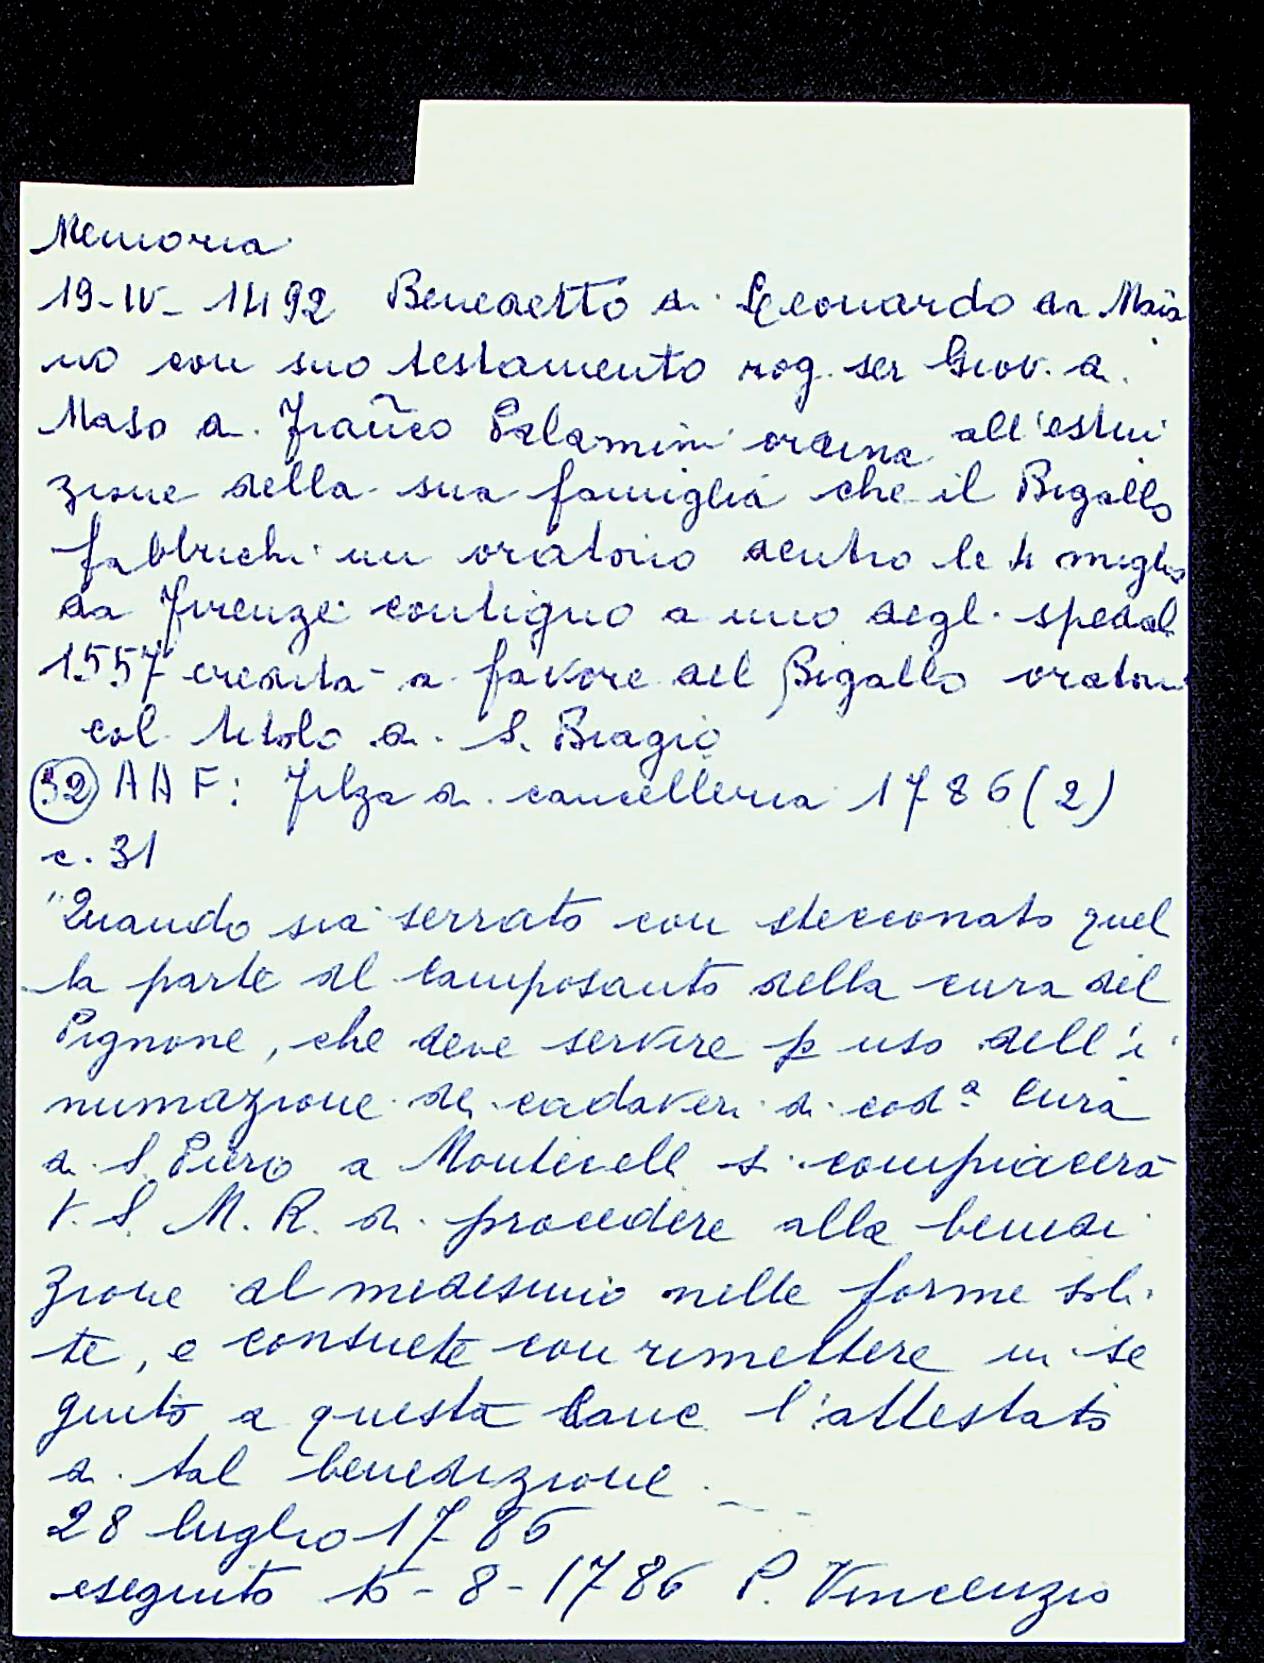 Memoria
19-IV-1492 Benedetto di Leonardo da Maia
no con suo testamento rog. ser Giov. di
Maso di Franco ordina all'estin
zione della sua famiglia che il Bigallo
fabbrichi un oratorio dentro le 4 miglia
da Firenze contiguo a uno degli spedal
1557 eredità a favore del Bigallo oratori
col titolo di S. Biagio
(32) AAF: Filza di cancelleria 1786 (2)
c. 31
"Quando sia serrato con stecconato quel
la parte del camposanto della cura del
Pignone, che deve servire p uso dell'i
numazione dei cadaveri di codª Cura
di S. Piero a Monticelli si compiacerà
V. S. M. R. di procedere alla benedi
zione del medesimo nelle forme soli
te, e consuete con rimettere in se
guito a questa Canc. l'attestato
di tal benedizione.
28 luglio 1786
eseguito -8-1786 P. Vincenzio